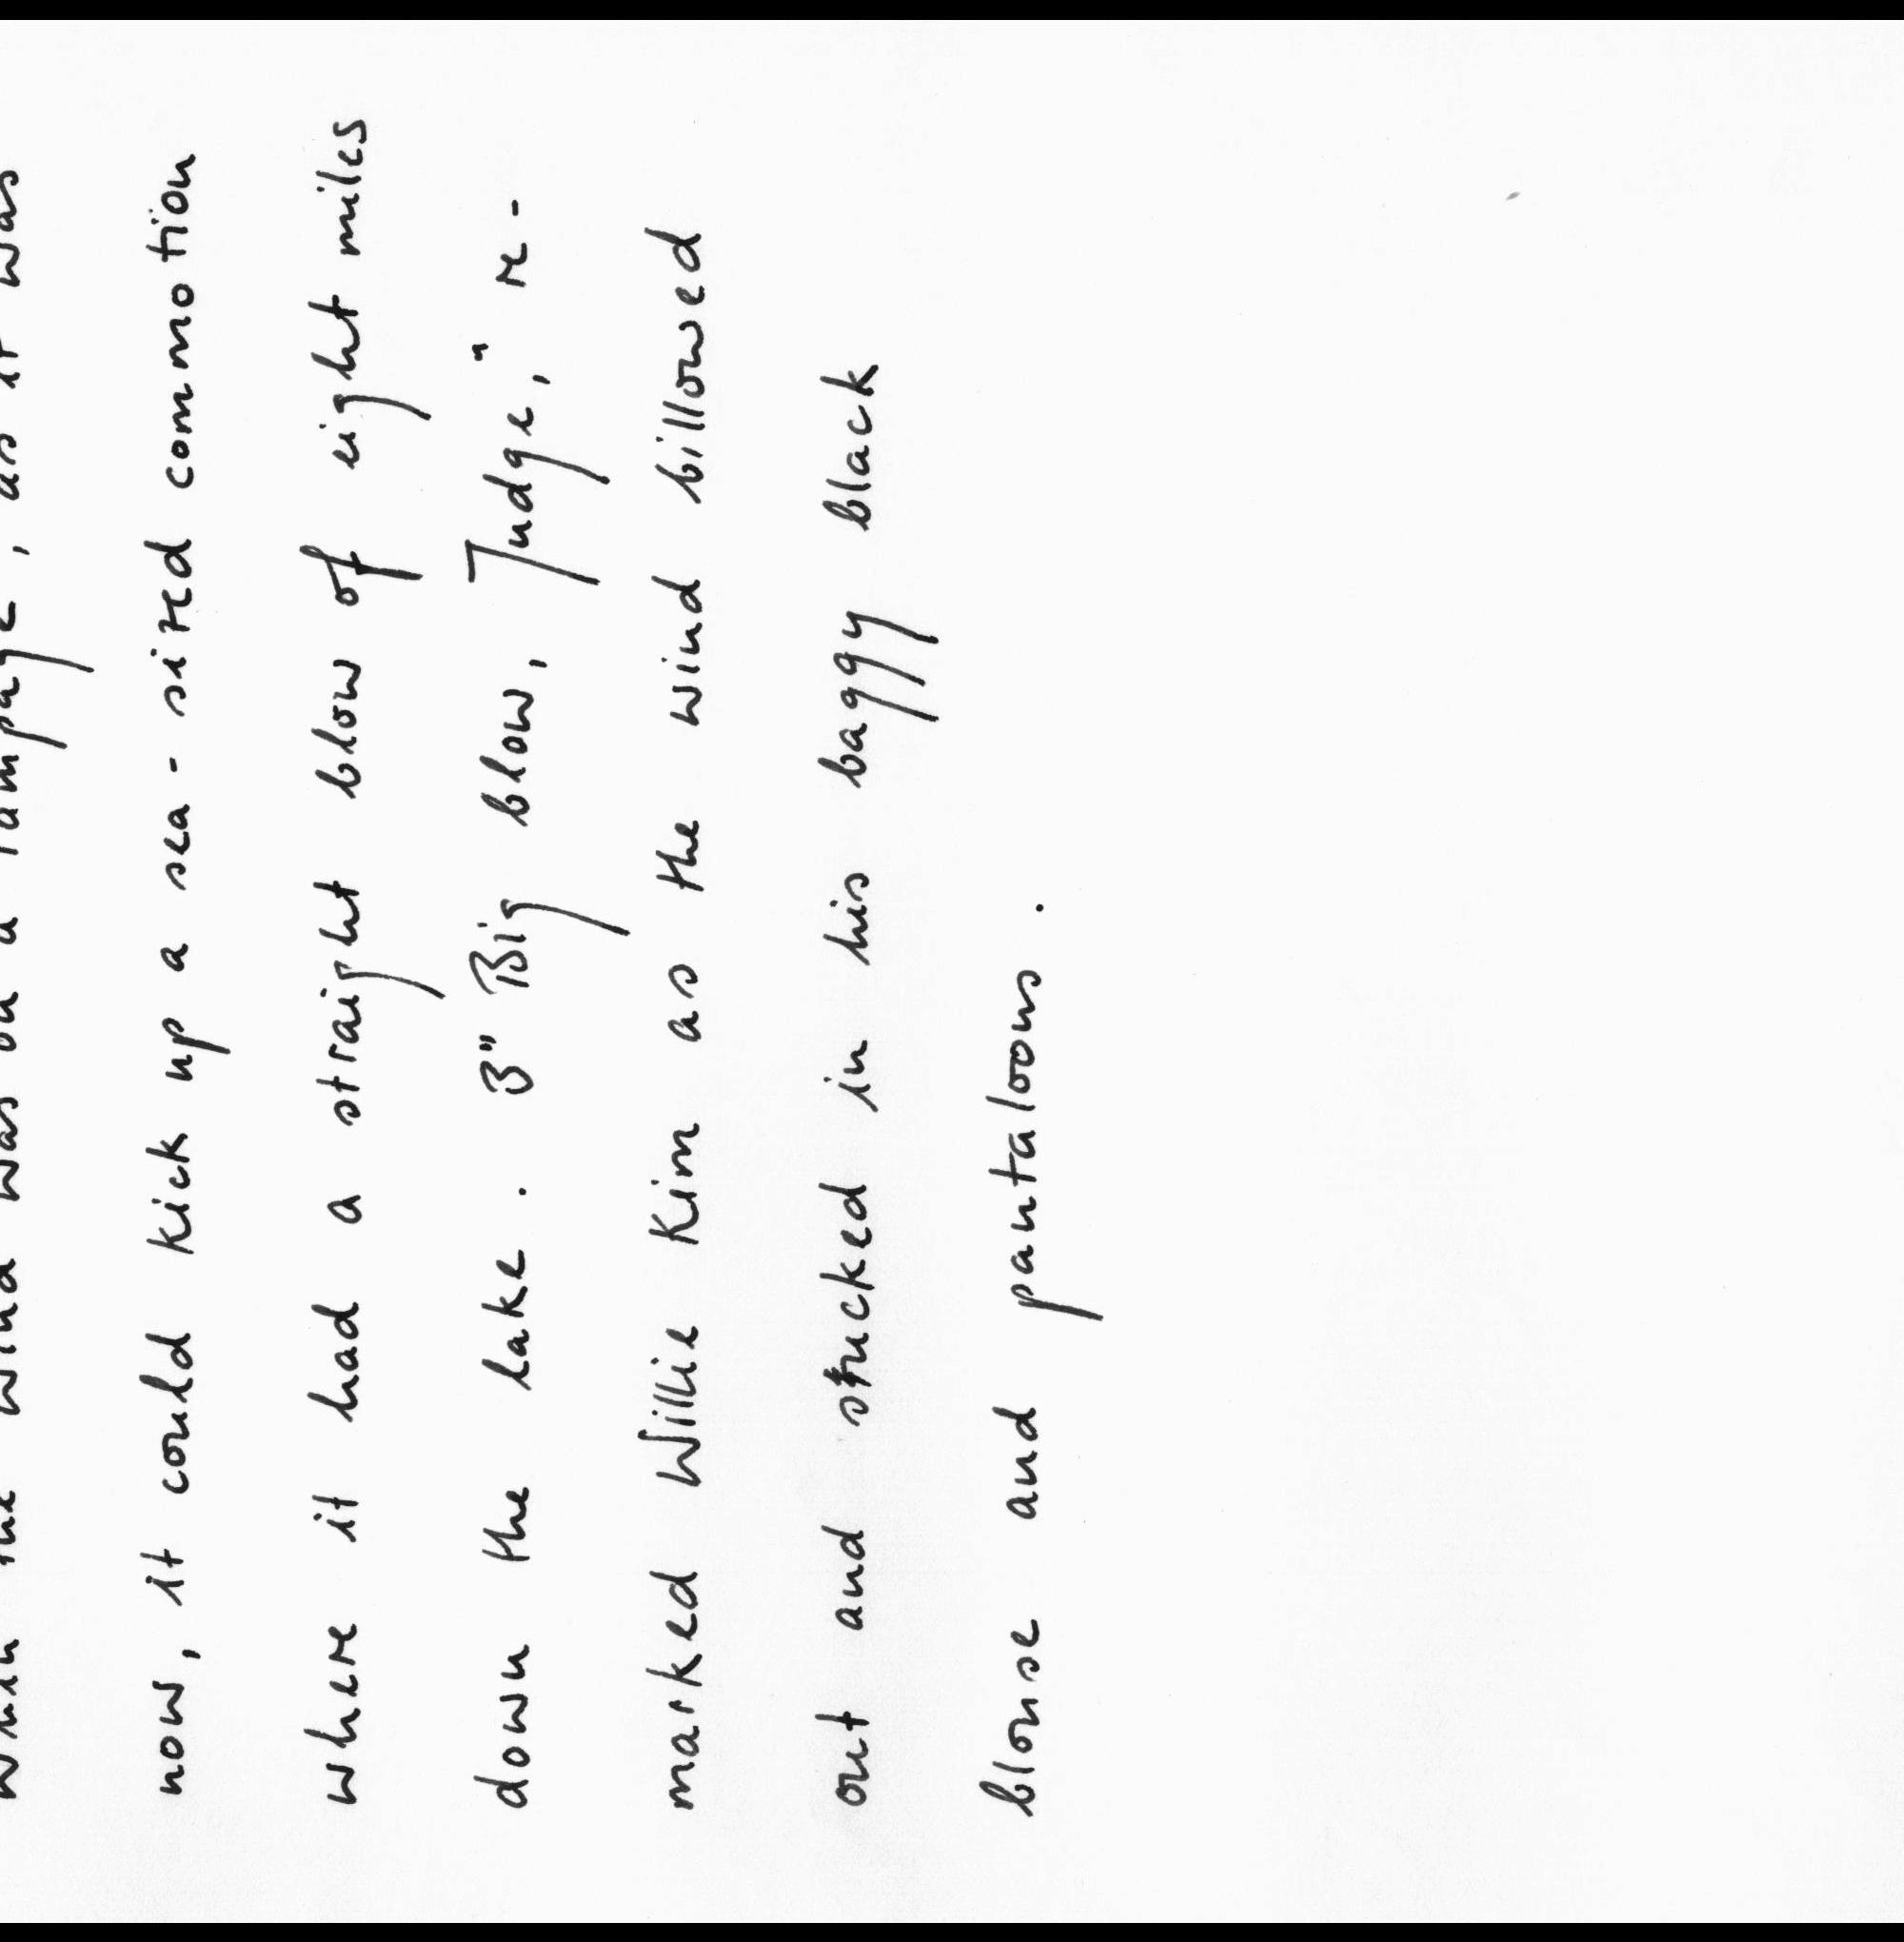 when the wind was on a rampage, as it was
now, it could kick up a sea-sized commotion
where it had a straight blow of eight miles
down the lake. B" Big blow, Judge," re-
marked Willie Kim as the wind billowed
out and stucked in his baggy black
blouse and pantaloons.